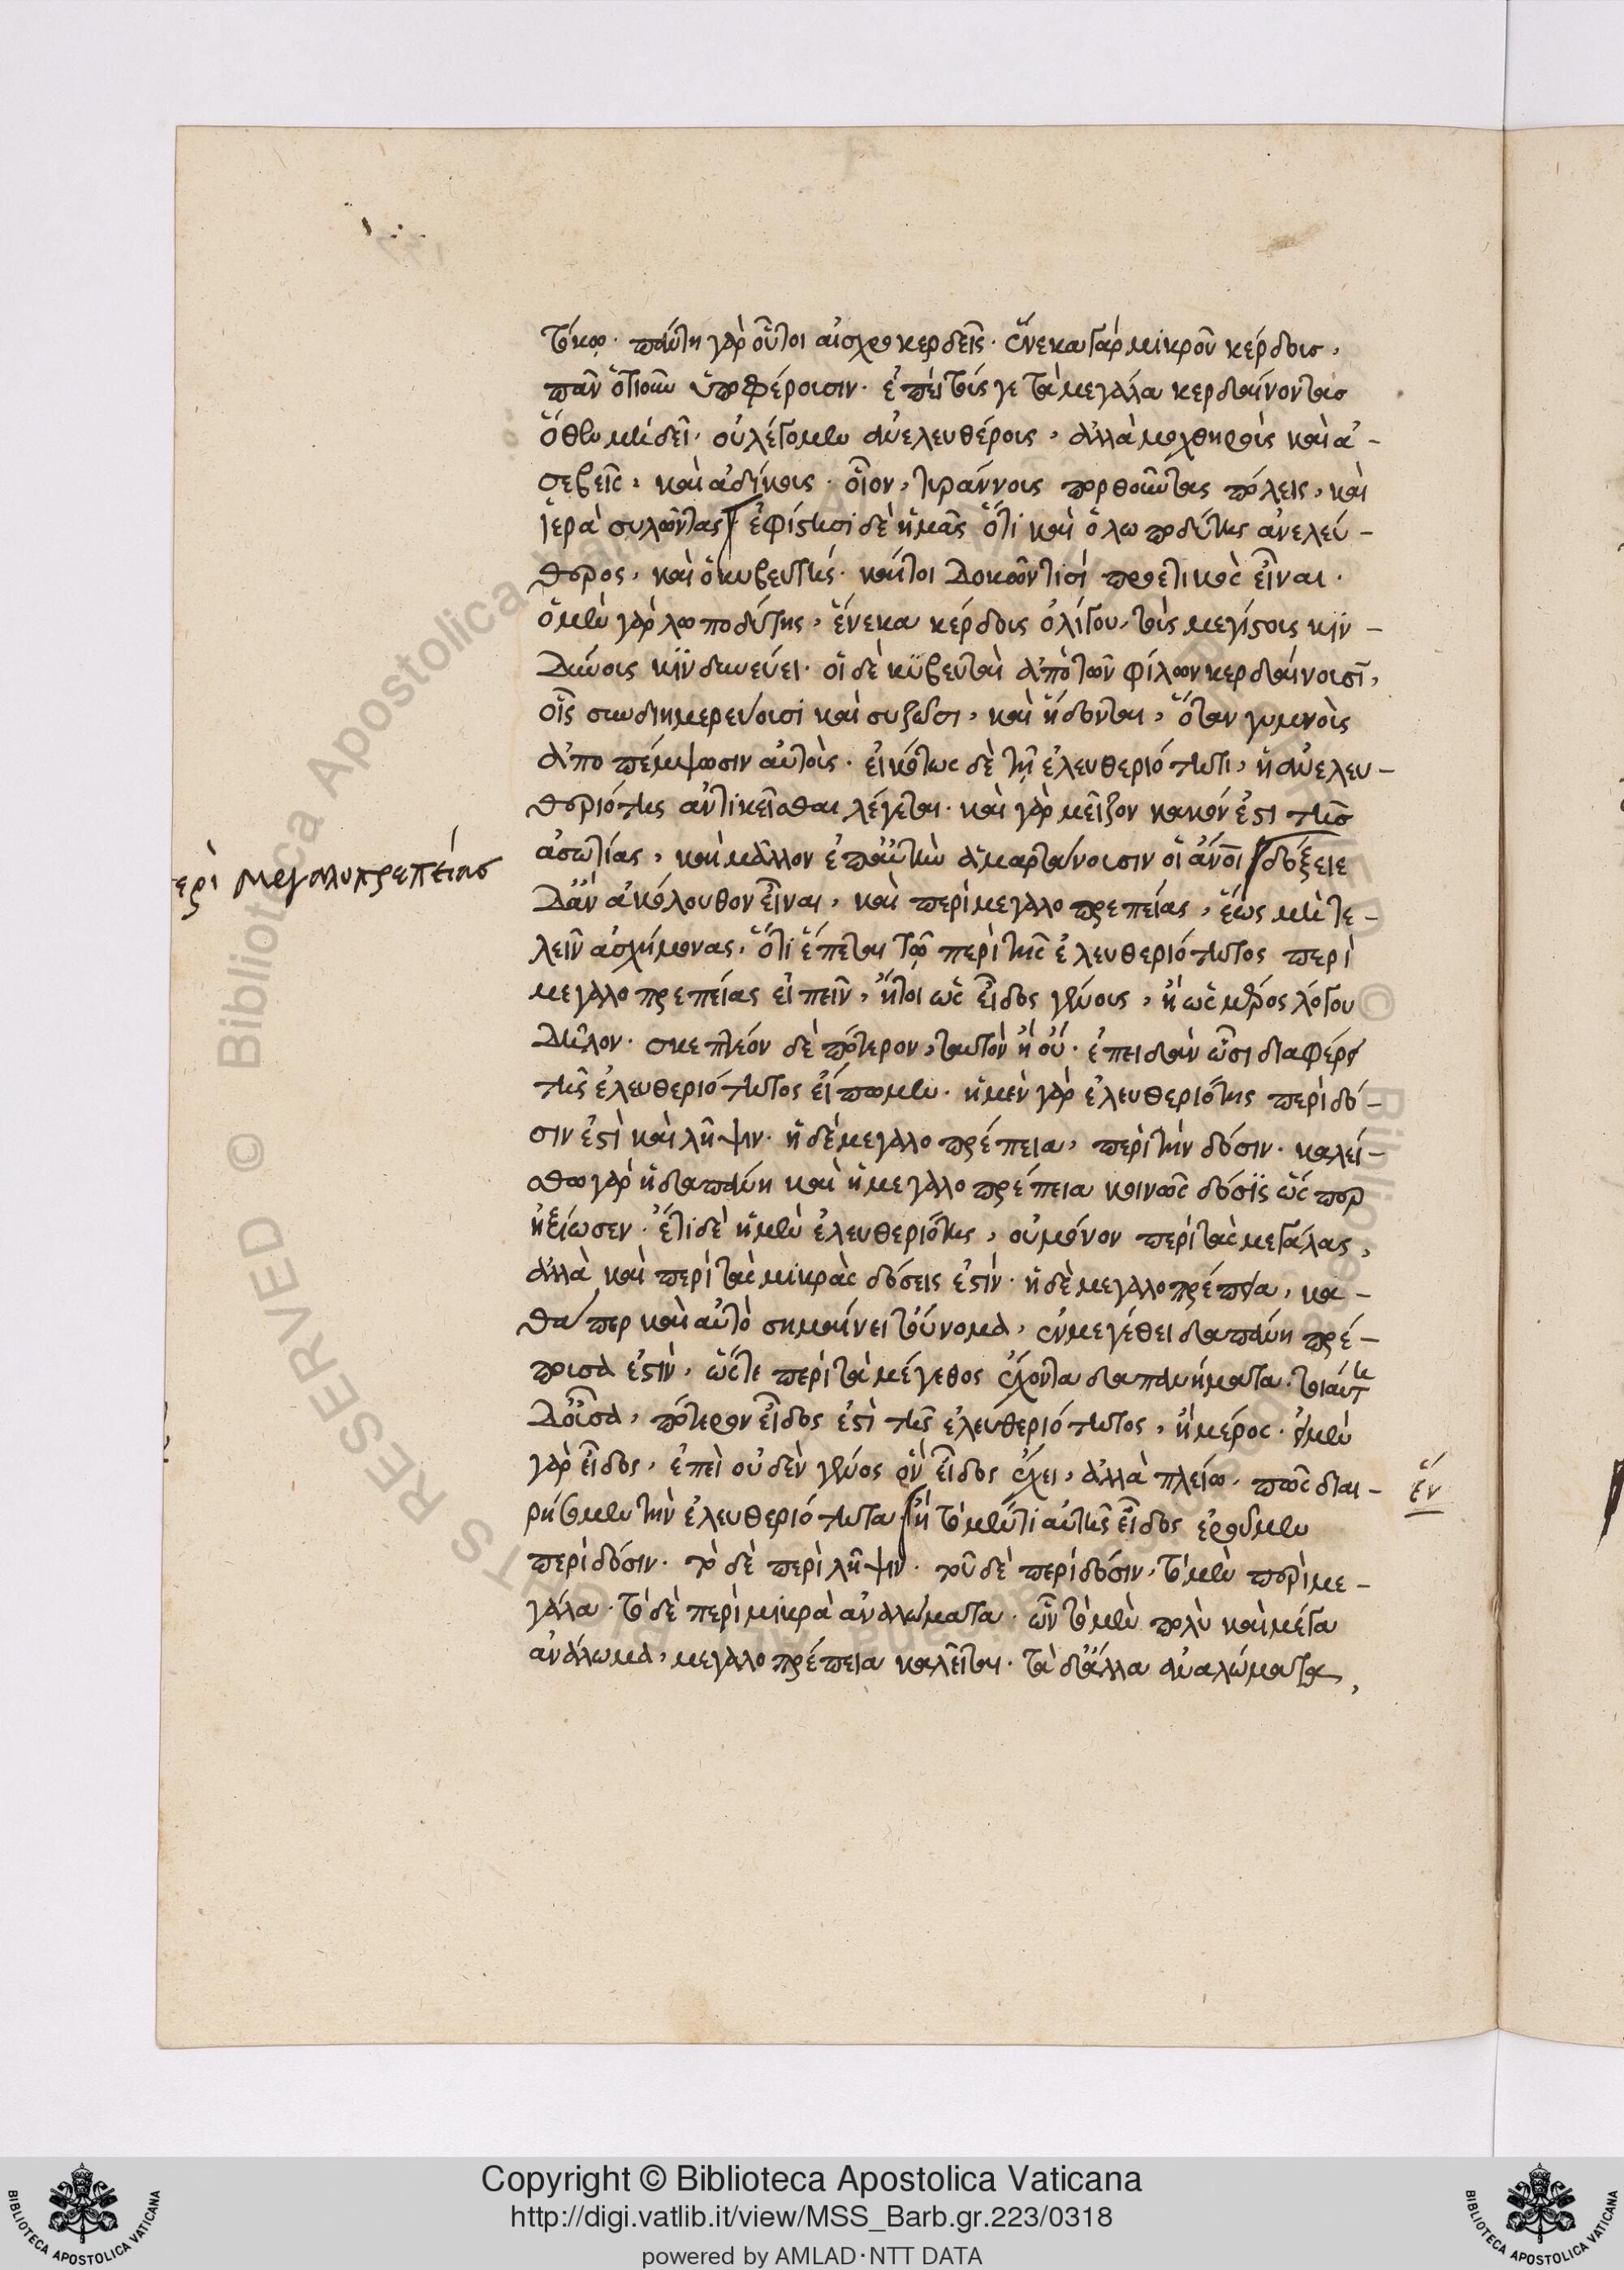 τόκῳ. πάντη γὰρ οὗτοι αἰσχροκερδεῖς. ἕνεκα γὰρ μικροῦ κέρδους,
πᾶν ὁτιοῦν ὑποφέρουσιν. ἐπεὶ τούς γε τὰ μεγάλα κερδαίνοντας
ὅθεν μὴ δεῖ, οὐ λέγομεν ἀνελευθέρους, ἀλλὰ μοχθηροὺς καὶ ἀ-
σεβεῖς, καὶ ἀδίκους. οἷον, τυράννους πορθοῦντας πόλεις, καὶ
ἱερὰ συλῶντας ἐφίστησι δὲ ἡμᾶς ὅτι καὶ ὁ λωποδύτης ἀνελεύ-
θερος, καὶ ὁ κυβευτής. καίτοι δοκοῦν τισὶ προετικὸς εἶναι.
ὁ μὲν γὰρ λωποδύτης, ἕνεκα κέρδους ὀλίγου, τοῖς μεγίστοις κιν-
δύνοις κινδυνεύει. οἱ δὲ κυβευταὶ ἀπὸ τῶν φίλων κερδαίνουσι,
οἷς συνδιημερεύουσι καὶ συζῶσι, καὶ ἥδονται, ὅταν γυμνοὺς
ἀποπέμψωσιν αὐτούς. εἰκότως δὲ τῇ ἐλευθεριότητι, ἡ ἀνελευ-
θεριότης ἀντικεῖσθαι λέγεται. καὶ γὰρ μεῖζον κακόν ἐστι τῆς
ἀσωτίας, καὶ μᾶλλον ἐπ' αὐτὴν ἁμαρτάνουσιν οἱ ἄνοι δόξειε
δ' ἂν ἀκόλουθον εἶναι, καὶ περὶ μεγαλοπρεπείας, ἕως μὴ τε-
λεῖν ἀσχήμονας. ὅτι ἕπεται τῷ περὶ τῆς ἐλευθεριότητος περὶ
μεγαλοπρεπείας εἰπεῖν, ἤτοι ὡς εἶδος γένους, ἢ ὡς μέρος λόγου
δῆλον. σκεπτέον δὲ πότερον, ταυτὸν ἢ οὔ. ἐπειδὰν ὧσι διαφέρει
τῆς ἐλευθεριότητος εἴπωμεν. ἡ μὲν γὰρ ἐλευθεριότης περὶ δό-
σιν ἐστὶ καὶ λῆψιν. ἡ δὲ μεγαλοπρέπεια, περὶ τὴν δόσιν. καλεί-
σθω γὰρ ἡ δαπάνη καὶ ἡ μεγαλοπρέπεια κοινῶς δόσις ὥσπερ
ἠξίωσεν. ἔτι δὲ ἡ μὲν ἐλευθεριότης, οὐ μόνον περὶ τὰς μεγάλας,
ἀλλὰ καὶ περὶ τὰς μικρὰς δόσεις ἐστίν. ἡ δὲ μεγαλοπρέπεια, κα-
θά περ καὶ αὐτὸ σημαίνει τοὔνομα, ἐν μεγέθει δαπάνη πρέ-
πουσα ἐστὶν, ὥστε περὶ τὰ μέγεθος ἔχοντα δαπανήματα. τοιαύτη
δ' οὖσα, πότερον εἶδος ἐστὶ τῆς ἐλευθεριότητος, ἢ μέρος. εἰ μὲν
γὰρ εἶδος, ἐπεὶ οὐδὲν γένος ἓν εἶδος ἔχει, ἀλλὰ πλείω. πῶς διαι-
ρήσομεν τὴν ἐλευθεριότητα ἢ τὸ μέν τι αὐτῆς εἶδος ἐροῦμεν
περὶ δόσιν. τὸ δὲ περὶ λῆψιν. τοῦ δὲ περὶ δόσιν, τὸ μὲν περὶ με-
γάλα. τὸ δὲ περὶ μικρὰ ἀναλώματα. ὧν τὸ μὲν πολὺ καὶ μέγα
ἀνάλωμα, μεγαλοπρέπεια καλεῖται. τὰ δ' ἄλλα ἀναλώματα,
ερὶ μεγαλοπρεπείασ
ἕν
Copyright © Biblioteca Apostolica Vaticana
http://digi.vatlib.it/view/MSS_Barb.gr.223/0318
powered by AMLAD·NTT DATA